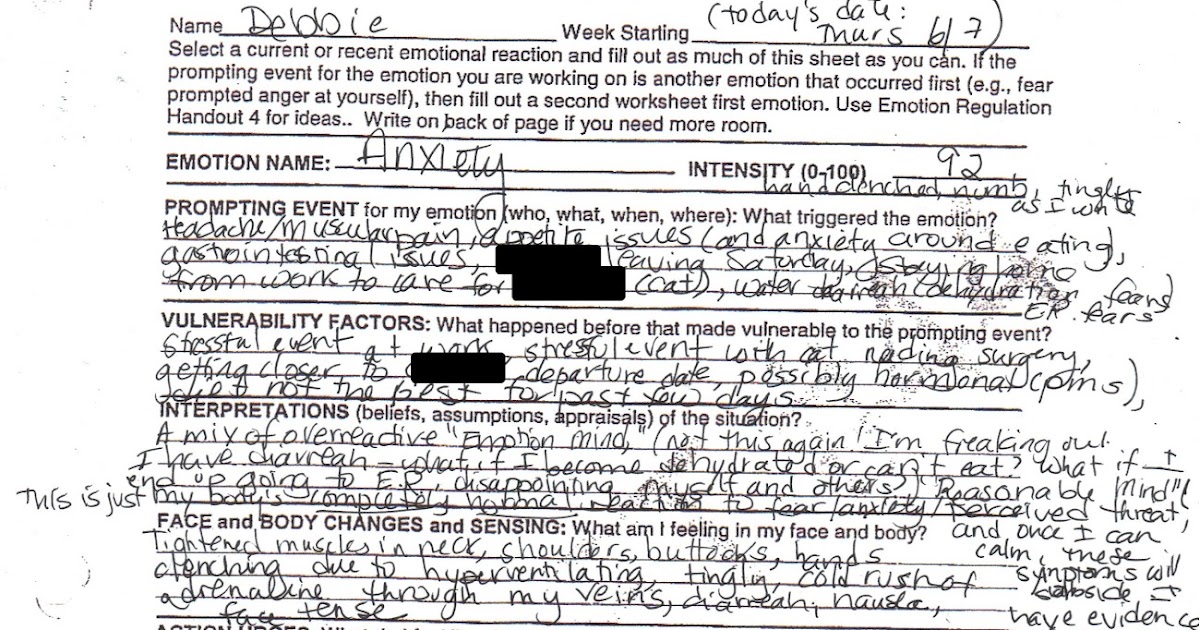 (today's date:
Name Debbie Week Starting Thurs 6/7)
Select a current or recent emotional reaction and fill out as much of this sheet as you can. If the
prompting event for the emotion you are working on is another emotion that occurred first (e.g., fear
prompted anger at yourself), then fill out a second worksheet first emotion. Use Emotion Regulation
Handout 4 for ideas.. Write on back of page if you need more room.
EMOTION NAME: Anxiety INTENSITY (0-100) 92
hand clenched, numb, tingly
as I write
PROMPTING EVENT for my emotion (who, what, when, where): What triggered the emotion?
Headache/muscular pain, appetite issues (and anxiety around eating),
gastrointestinal issues, leaving Saturday, (staying home
from work to care for (cat), water (dehydration fears)
E.R. fears
VULNERABILITY FACTORS: What happened before that made vulnerable to the prompting event?
Stressful event at work, stressful event with cat needing surgery,
getting closer to departure date, possibly hormonal (pms),
diet not the best for past few days
INTERPRETATIONS (beliefs, assumptions, appraisals) of the situation?
A mix of overreactive "Emotion mind," (not this again! I'm freaking out.
I have diarreah - what if I become dehydrated or can't eat? What if I
end up going to E.R., disappointing myself and others) "Reasonable Mind" (
This is just my body's completely normal reaction to fear/anxiety/perceived threat,
and once I can
calm, these
symptoms will
subside I
have evidence
FACE and BODY CHANGES and SENSING: What am I feeling in my face and body?
Tightened muscles in neck, shoulders, buttocks, hands
clenching due to hyperventilating, tingly, cold rush of
adrenaline through my veins, diarreah, nausea,
face tense